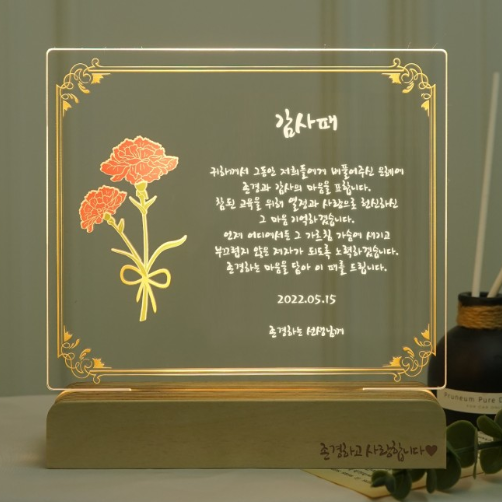 감사패
귀하께서 그동안 저희들에게 베풀어주신 은혜에
존경과 감사의 마음을 표합니다.
참된 교육을 위해 열정과 사랑으로 헌신하신
그 마음 기억하겠습니다.
언제 어디에서든 그 가르침 가슴에 새기고
부끄럽지 않은 제자가 되도록 노력하겠습니다.
존경하는 마음을 담아 이 패를 드립니다.
2022.05.15
존경하는 선생님께
존경하고 사랑합니다♥
Pruneum Pure D